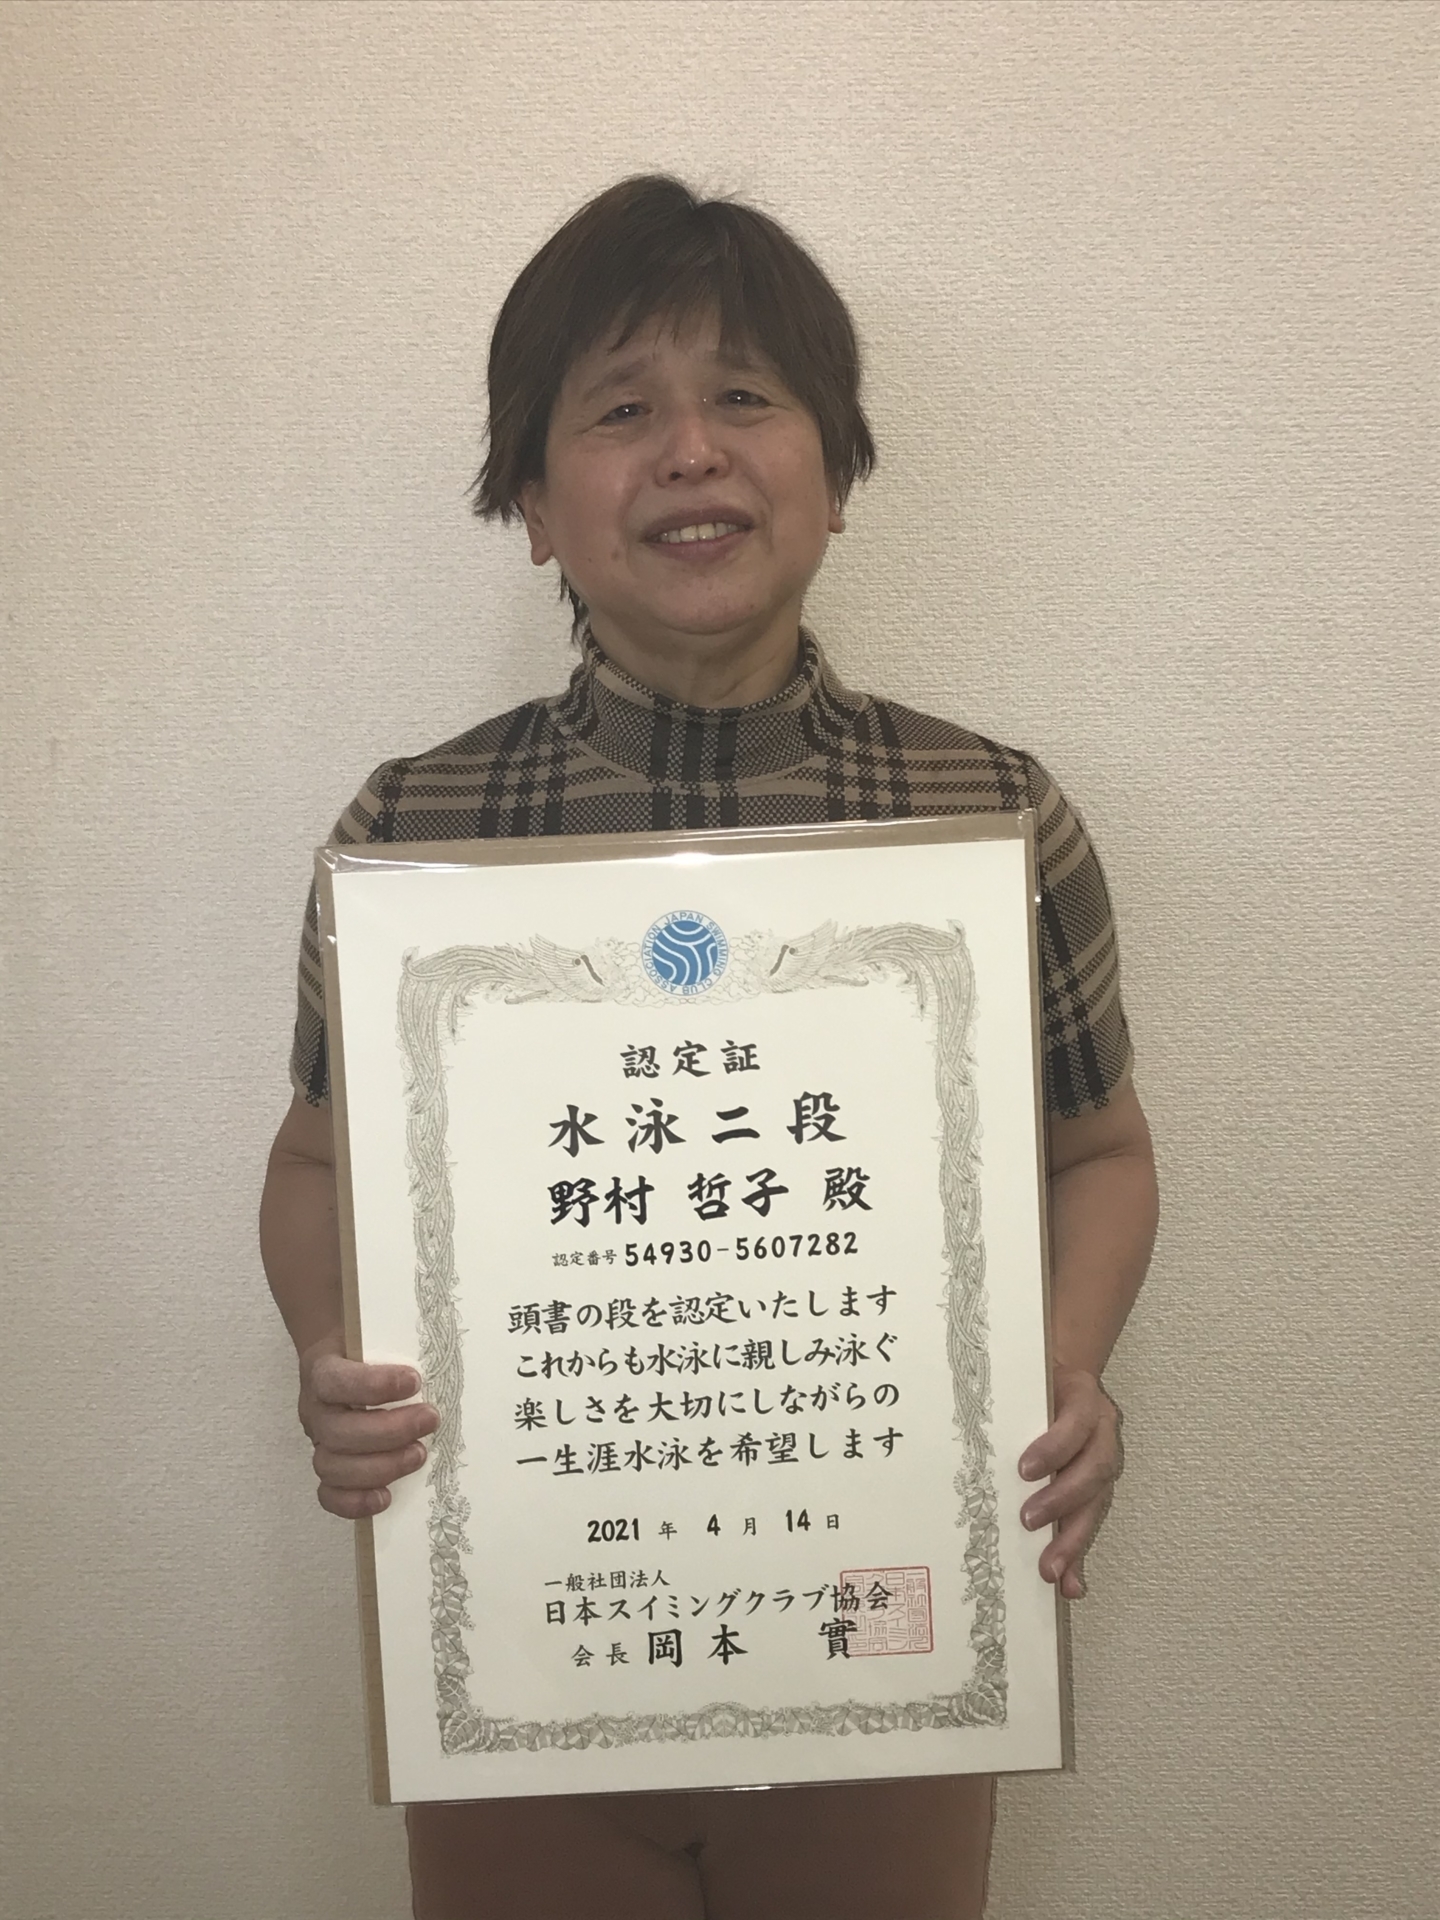 JAPAN SWIMMING CLUB ASSOCIATION
認定証
水泳二段
野村 哲子 殿
認定番号 54930-5607282
頭書の段を認定いたします
これからも水泳に親しみ泳ぐ
楽しさを大切にしながらの
一生涯水泳を希望します
2021 年 4 月 14 日
一般社団法人
日本スイミングクラブ協会
会長 岡本 實